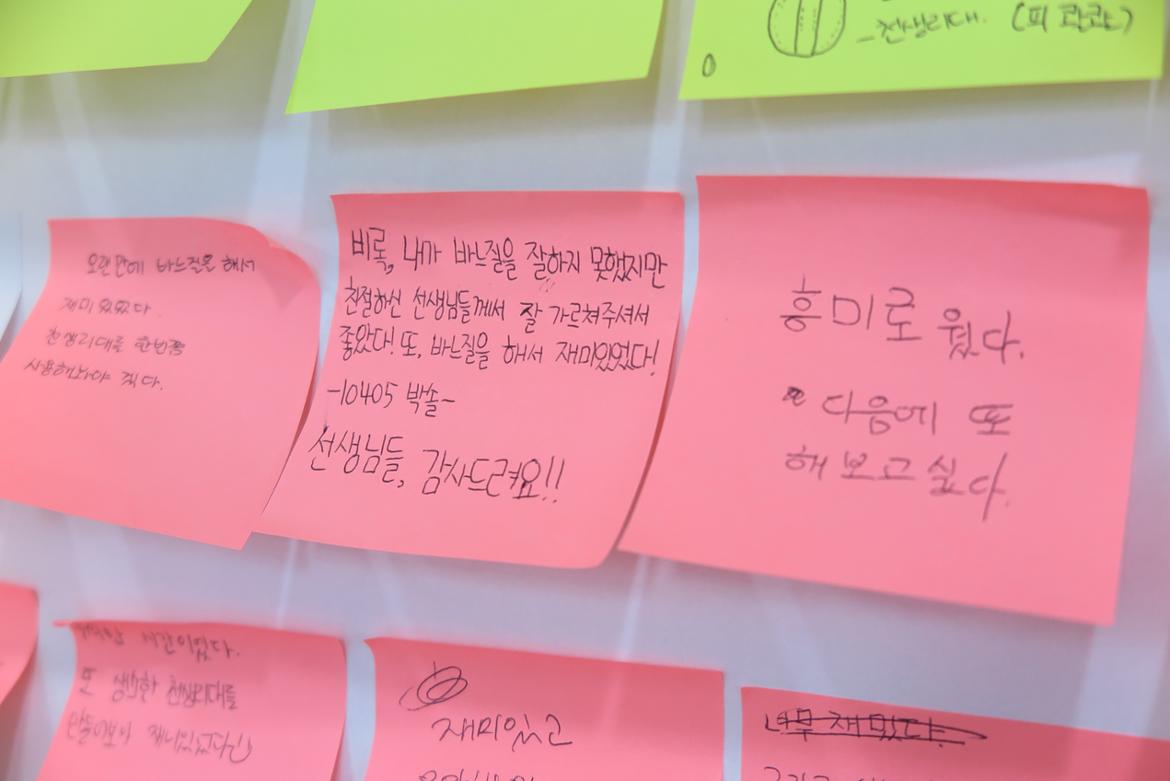 -천생리대. (피 콸콸)
오랜만에 바느질을 해서
재미있었다.
천생리대를 한번쯤
사용해봐야 겠다.
비록, 내가 바느질을 잘하지 못했지만
친절하신 선생님들께서 잘 가르쳐주셔서
좋았다! 또, 바느질을 해서 재미있었다!
-10405 박솔-
선생님들, 감사드려요!!
흥미로웠다.
다음에 또
해보고싶다.
시간이었다.
또 생소한 천생리대를
만들어보아
재미있고
너무 재밌다.